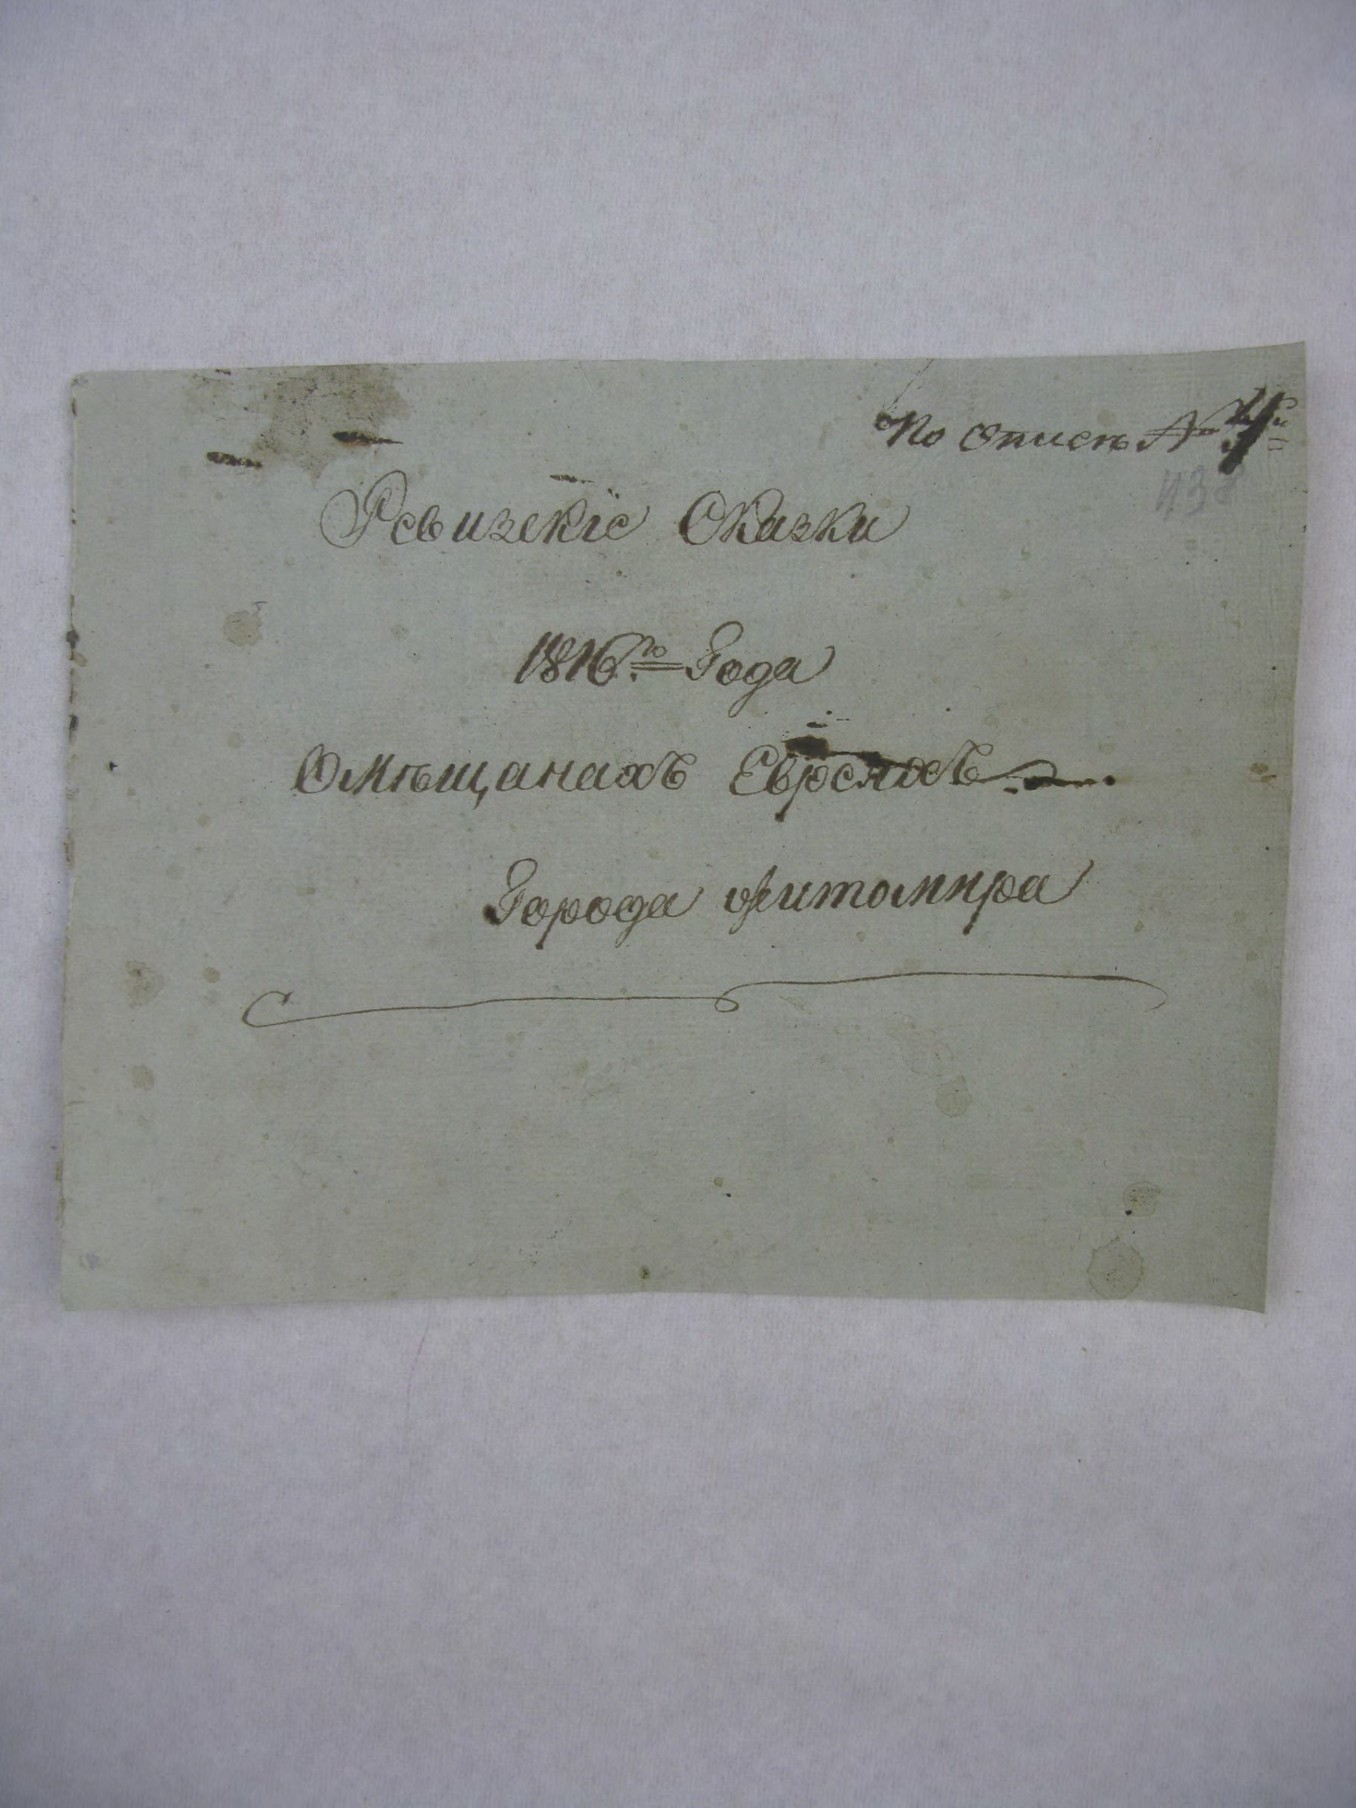 По описѣ №
438
Ревизскіе Сказки
1816го Года
О мѣщанахъ Евреяхъ
Города Житомира